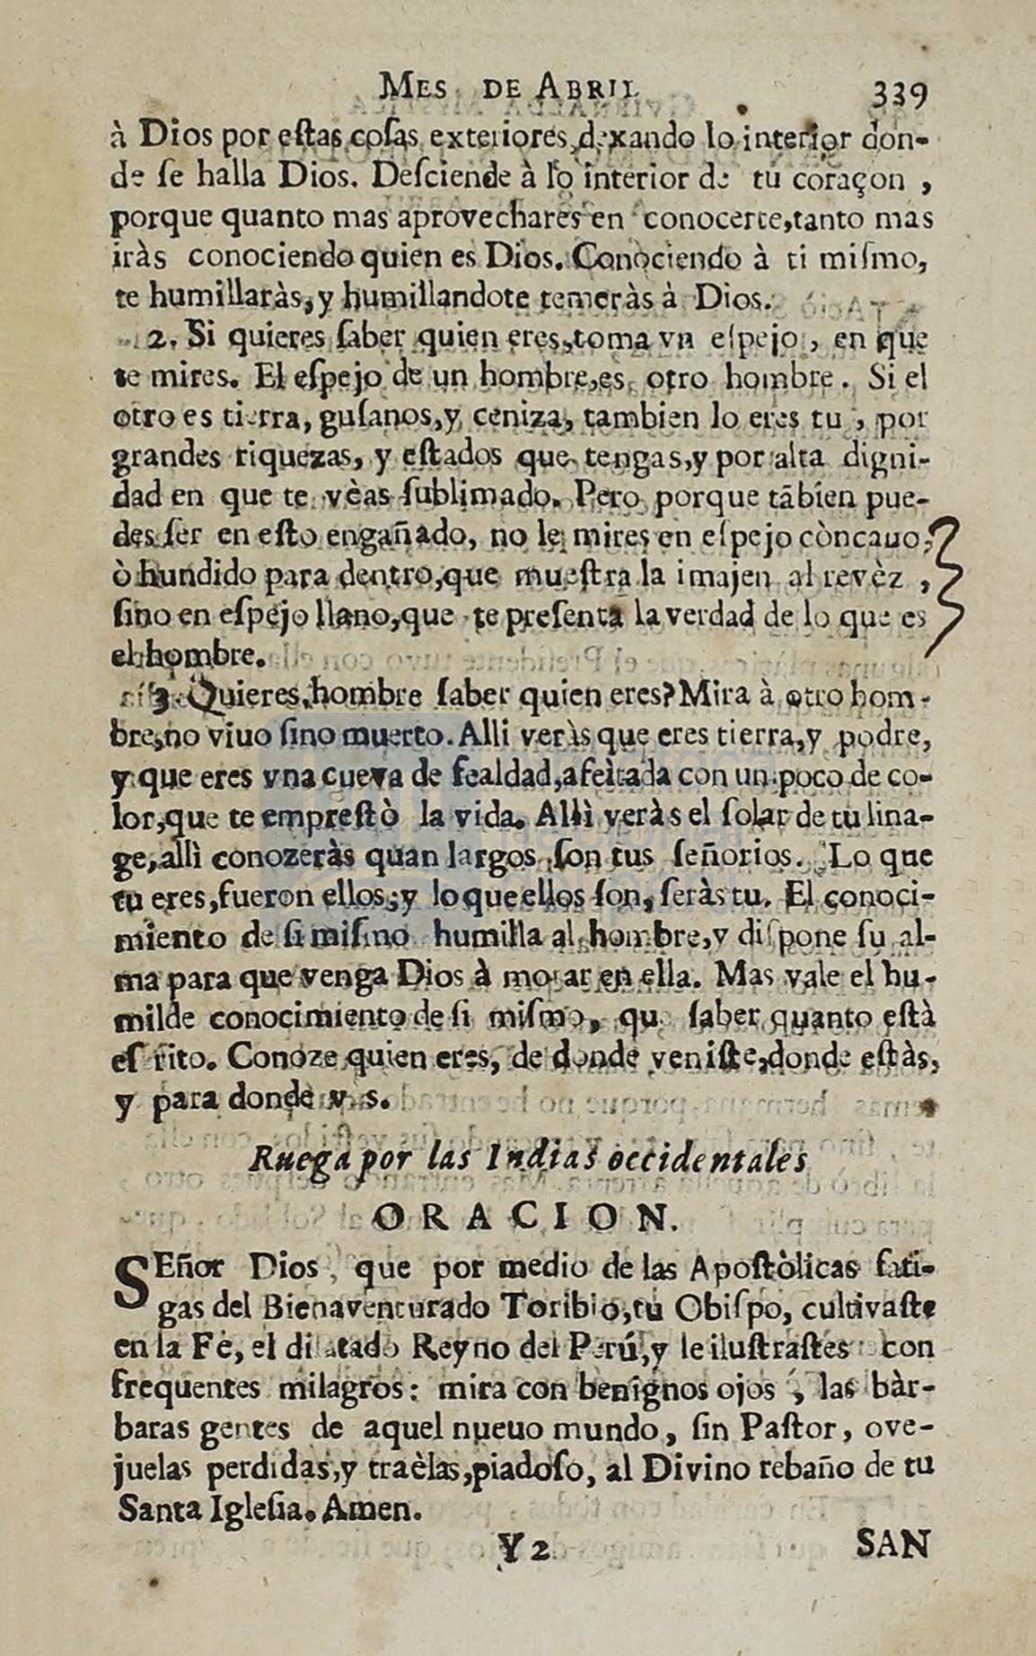 MES DE ABRIL 339
à Dios por eſtas coſas exteriores, dexando lo interior don-
de ſe halla Dios. Deſciende à lo interior de tu coraçon ,
porque quanto mas aprovechares en conocerte,tanto mas
iràs conociendo quien es Dios. Conociendo à ti miſmo,
te humillaràs, y humillandote temeràs à Dios.
2. Si quieres ſaber quien eres, toma vn eſpejo , en que
te mires. El eſpejo de un hombre,es otro hombre . Si el
otro es tierra, guſanos,y ceniza, tambien lo eres tu , por
grandes riquezas, y eſtados que tengas,y por alta digni-
dad en que te vèas ſublimado. Pero porque tãbien pue-
des ſer en eſto engañado, no le mires en eſpejo còncauo,
ò hundido para dentro,que mueſtra la imajen al revèz ,
ſino en eſpejo llano,que te preſenta la verdad de lo que es
el hombre.
3. Quieres hombre ſaber quien eres? Mira à otro hom-
bre,no viuo ſino muerto. Alli veràs que eres tierra,y podre,
y que eres vna cueva de fealdad,afeitada con un poco de co-
lor,que te empreſtò la vida. Allì veràs el ſolar de tu lina-
ge,allì conozeràs quan largos ſon tus ſeñorios. Lo que
tu eres,fueron ellos;y lo que ellos ſon, ſeràs tu. El conoci-
miento de ſi miſmo humilla al hombre,y diſpone ſu al-
ma para que venga Dios à morar en ella. Mas vale el hu-
milde conocimiento de ſi miſmo, que ſaber quanto eſtà
eſcrito. Conoze quien eres, de donde veniſte,donde eſtàs,
y para donde vas.
Ruega por las Indias occidentales
ORACION.
SEñor Dios , que por medio de las Apoſtòlicas fati-
gas del Bienaventurado Toribio,tu Obiſpo, cultivaſte
en la Fè, el dilatado Reyno del Perú,y le iluſtraſtes con
frequentes milagros: mira con benignos ojos , las bàr-
baras gentes de aquel nueuo mundo, ſin Paſtor, ove-
juelas perdidas,y traèlas,piadoſo, al Divino rebaño de tu
Santa Igleſia. Amen.
Y 2 SAN